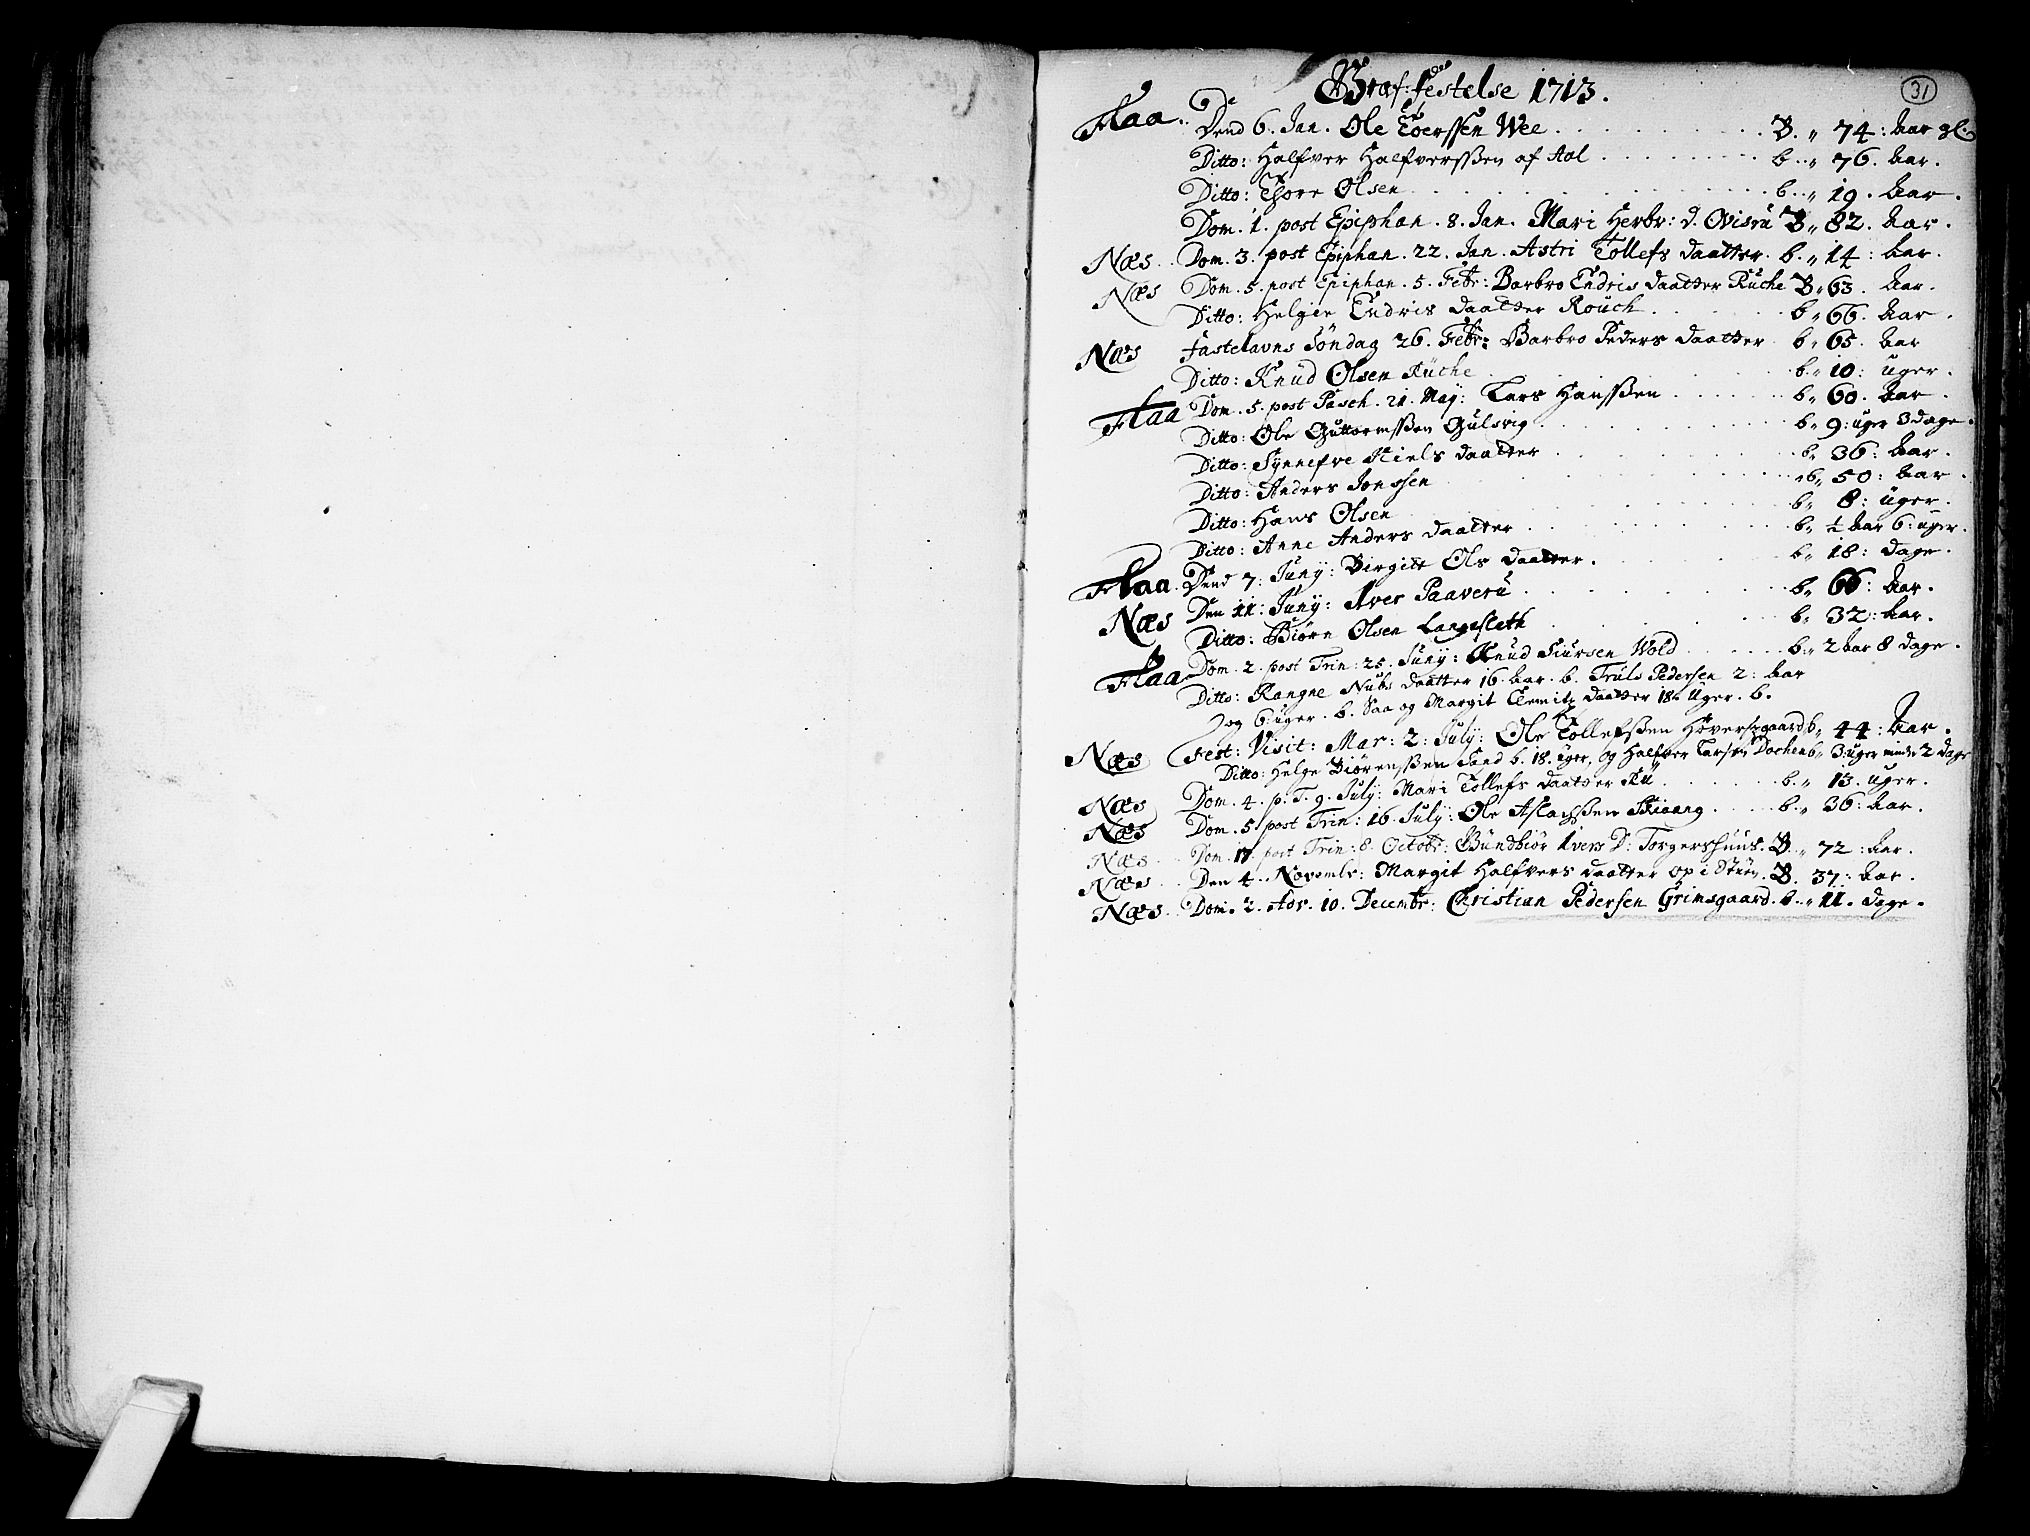 Graf:festelse 1713.
31
Flaa. Dend 6. Jan. Ole Toerssen Wee . . . B. „ 74: Aar gl.
Ditto: Halfver Halfverssen af Aal . . . b. „ 76. Aar.
Ditto: Thore Olsen . . . b. „ 19. Aar.
Dom. 1. post Epiphan. 8. Jan. Mari Herbr: d. Ovisrü B „ 82. Aar.
Næs Dom. 3. post Epiphan. 22. Jan. Astri Tollefs daatter. b. „ 14: Aar.
Næs Dom. 5. post Epiphan. 5. Febr: Barbro Endris daatter Rüche B „ 63. Aar.
Ditto: Helgie Endris daatter Rouch . . . b „ 66. Aar.
Næs Fastelavns Søndag 26. Febr: Barbro Peders daatter b „ 65. Aar
Ditto: Knud Olsen Rüche . . . b. „ 10: uger.
Flaa Dom. 5. post Pasch. 21. Maij: Lars Hanssen . . . b „ 60. Aar.
Ditto: Ole Guttormssen Gulsvig . . . b „ 9: uger 3 dage.
Ditto: Synnefve Niels daatter . . . b „ 36: Aar.
Ditto: Anders Jonssen . . . b „ 50: Aar.
Ditto: Hans Olsen . . . b „ 8: uger.
Ditto: Anne Anders daatter . . . b „ ½ Aar 6: uger.
Flaa. Dend 7: Junij: Birgitte Ols daatter. . . . b „ 18: dage.
Næs Den 11: Junij: Iver Paaverü . . . b „ 66: Aar.
Ditto: Biørn Olsen Langesleth . . . b „ 32: Aar.
Flaa Dom. 2. post Trin: 25. Junij: Knud Siursen Wold . . . b. „ 2 Aar 8 dage.
Ditto: Rangne Nubs daatter 16. Aar. b. Truls Pedersen 2: Aar
og 6: uger. b. Saa og Margit Clemitz daatter 18. Uger. b.
Næs Fest: Visit: Mar: 2: Julij: Ole Tollefssen Høversgaard b „ 44: Aar.
Ditto: Helge Biørenssen Sand b. 18. uger, og Halfver Larsen Dochen b „ 3: uger mindr 2 dage
Næs Dom. 4. p. T. 9. Julij: Mari Tollefs daatter Rü . . . b. „ 13. uger.
Næs Dom. 5. post Trin: 16. Julij: Ole Aslachssen Skiaang . . . b. „ 36: Aar.
Næs Dom. 17. post Trin: 8. Octobr: Gundbiør Ivers D: Torgershuus. B. „ 72: Aar.
Næs Den 4. Novembr: Margit Halfvers daatter op i Stuen. B. 37: Aar.
Næs Dom. 2. Adv. 10. Decembr: Christian Pedersen Grimsgaard. b. „ 11. dage.